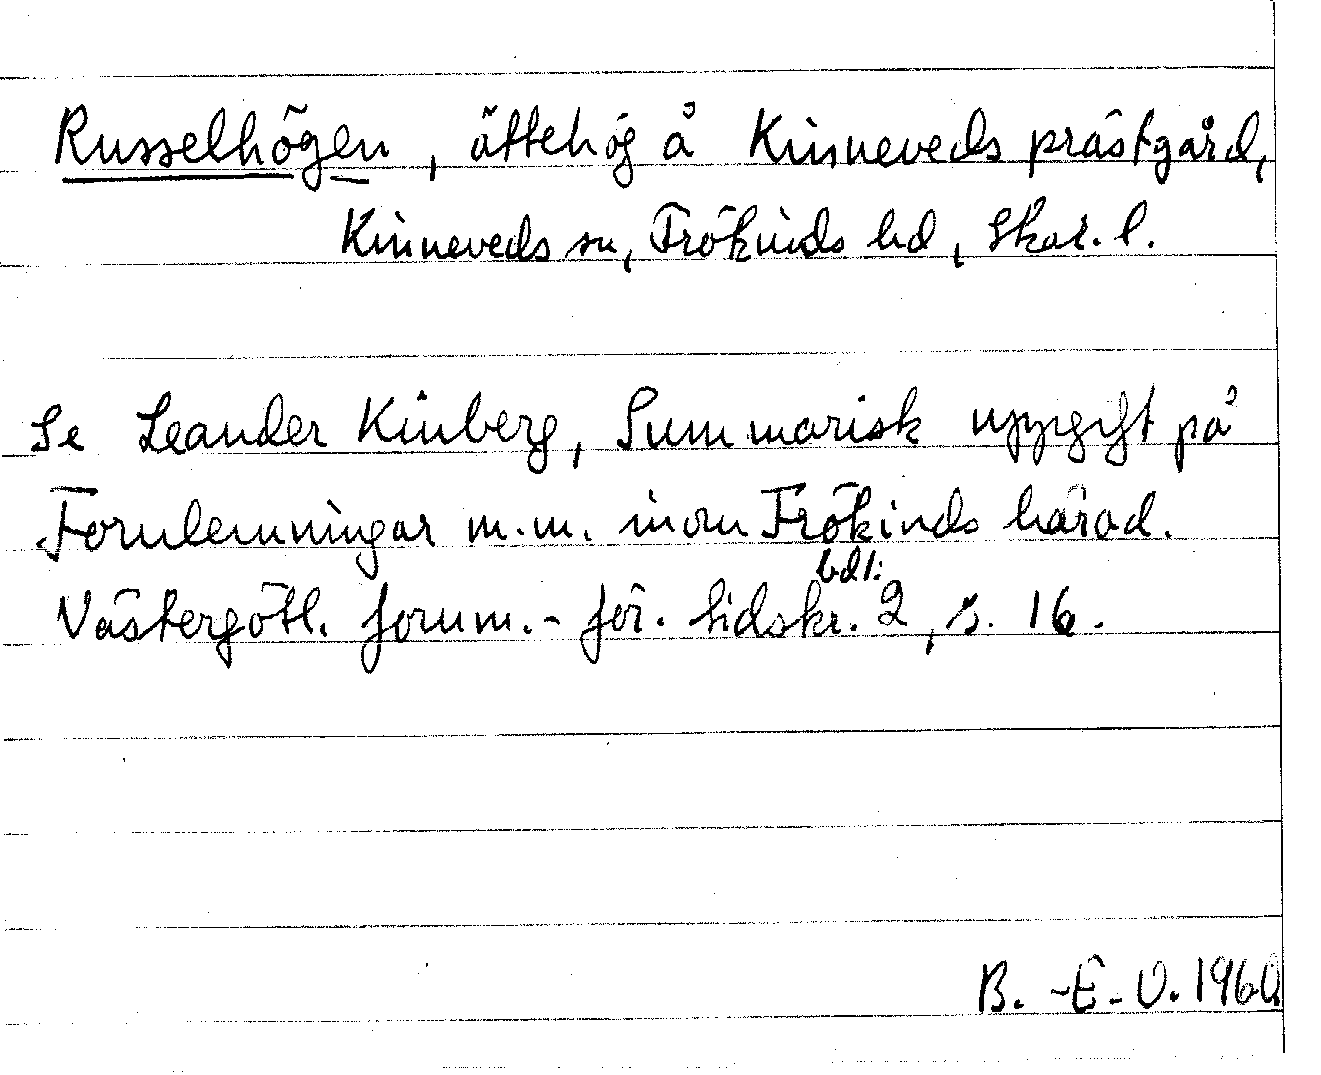 Russelhögen, ättehög å Kinneveds prästgård,
Kinneveds sn, Frökinds hd, Skar. l.
Se Leander Kinberg, Summarisk uppgift på
Fornlemningar m.m. inom Frökinds härad.
Västergötl. fornm.-för. tidskr. bd 1: 2, s. 16.
B.-E. O. 1960